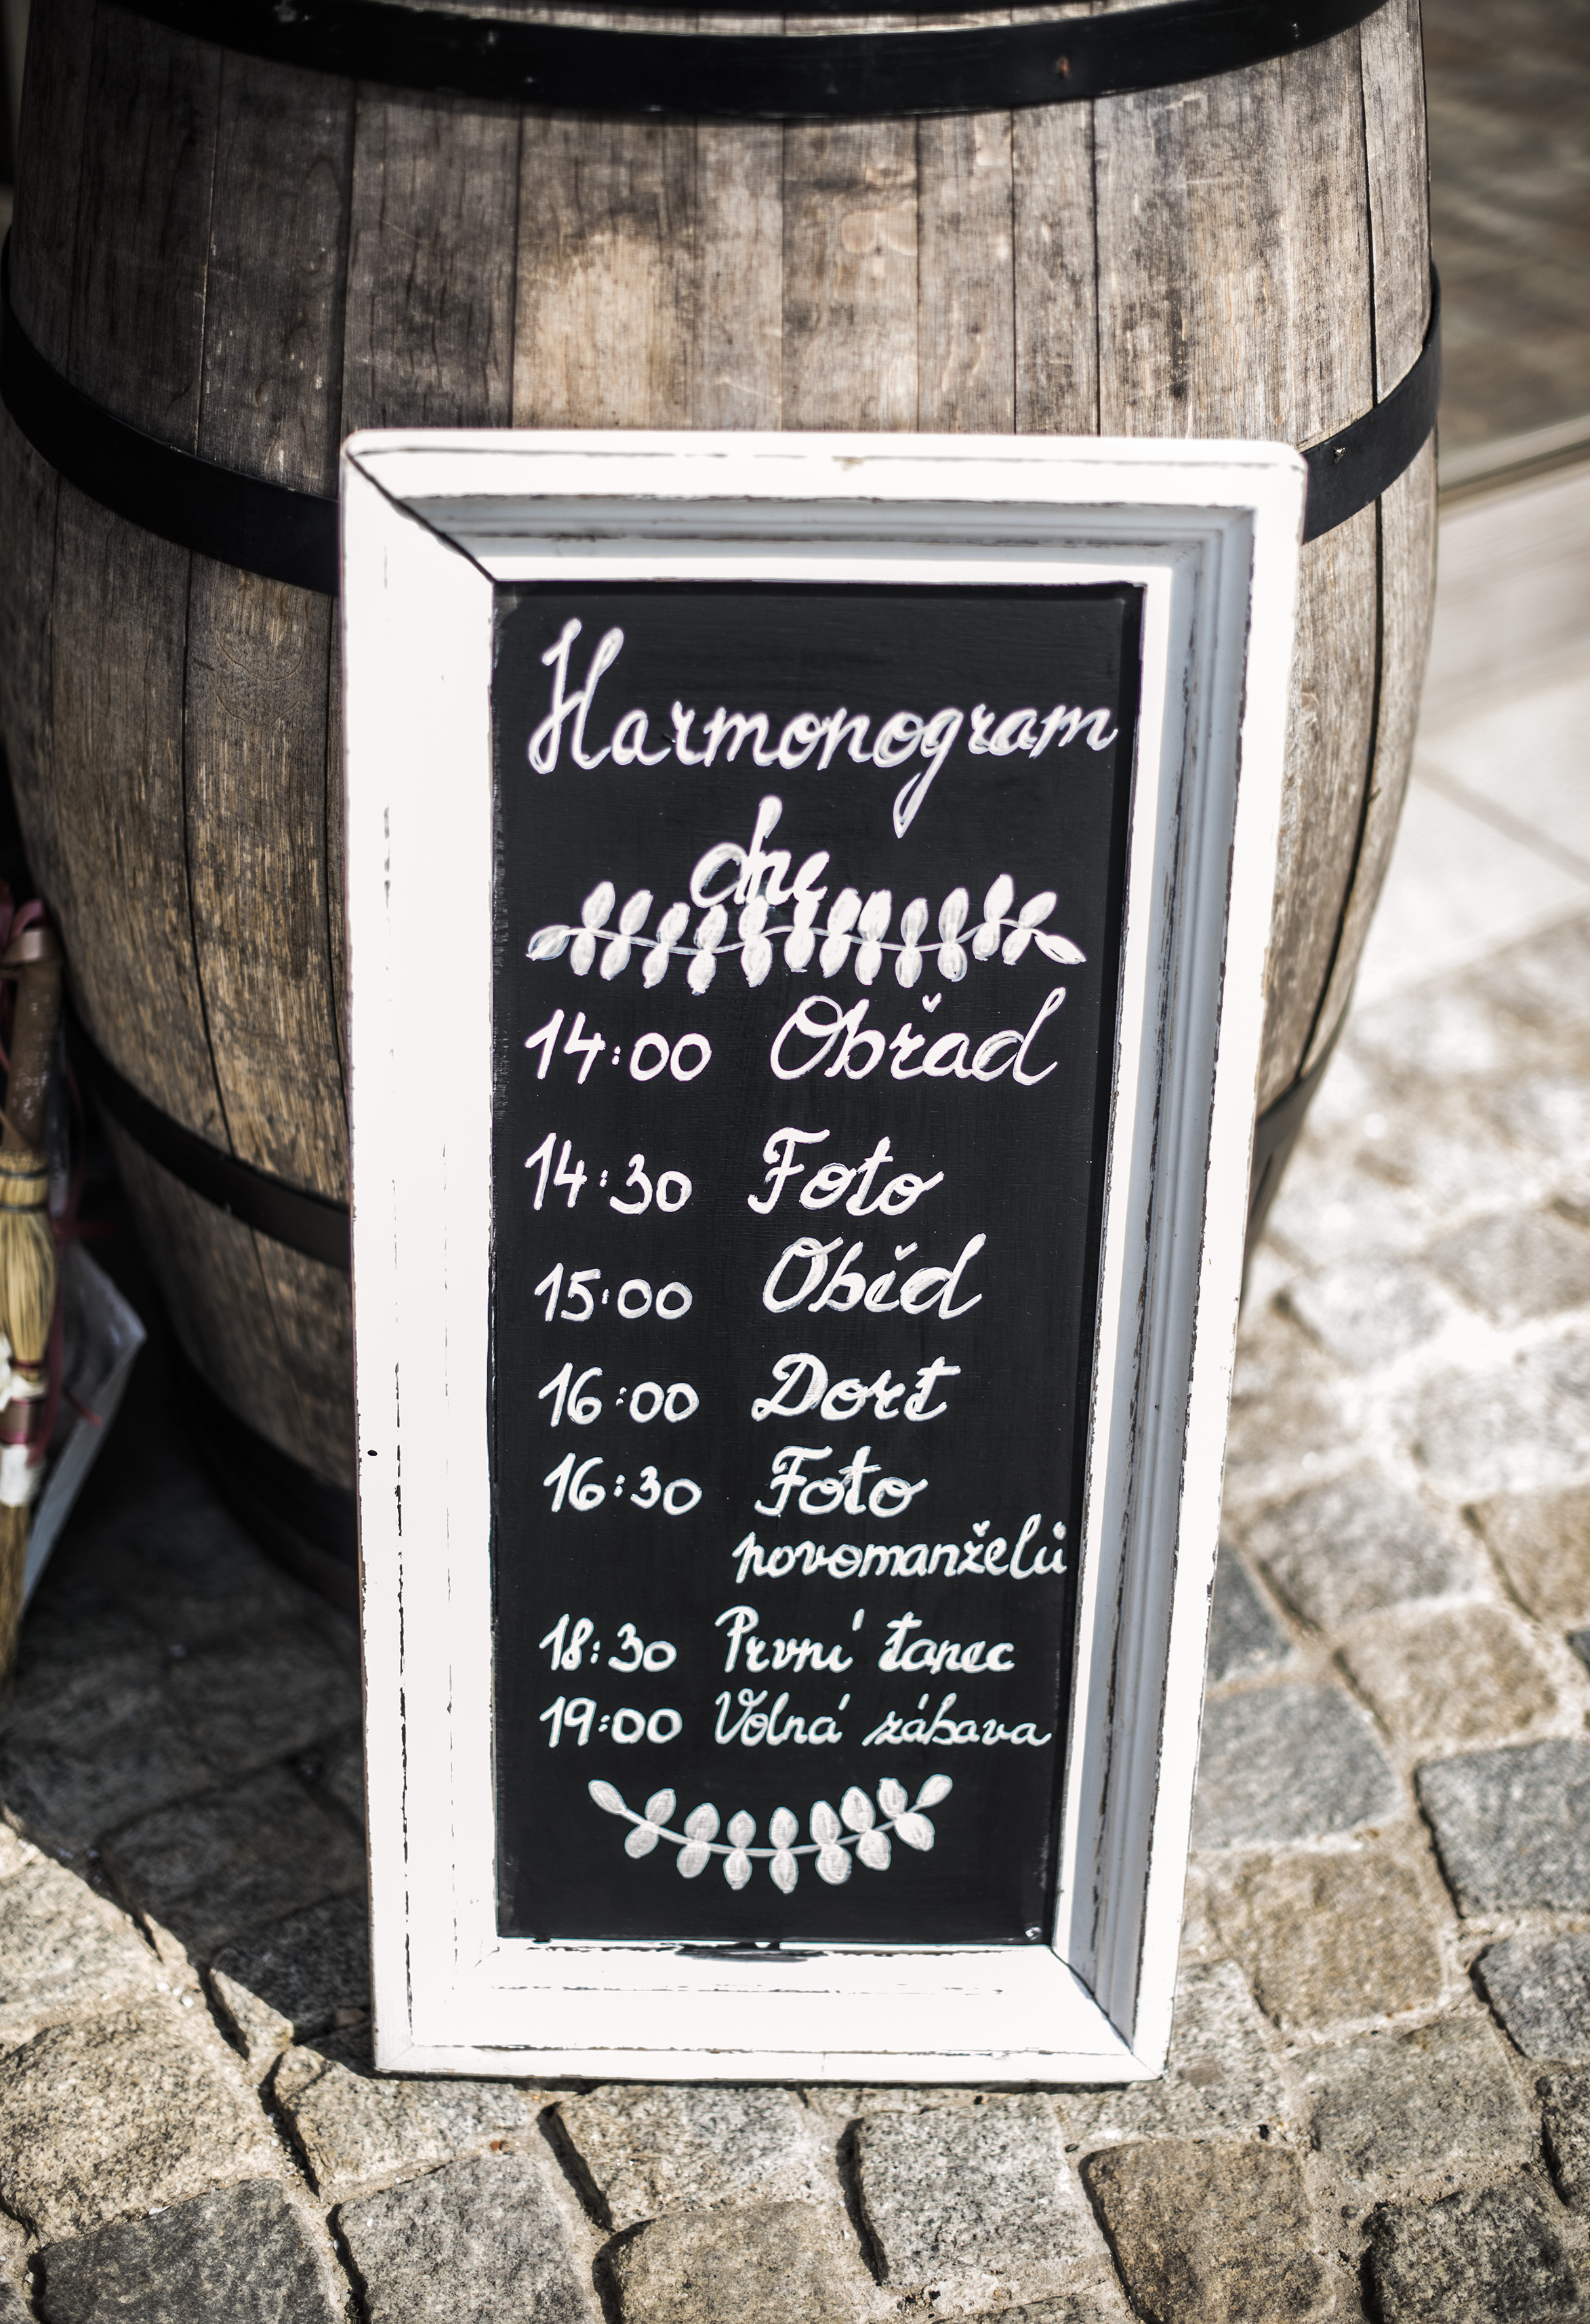 Harmonogram
dne
14:00 Obřad
14:30 Foto
15:00 Oběd
16:00 Dort
16:30 Foto
novomanželů
18:30 První tanec
19:00 Volná zábava